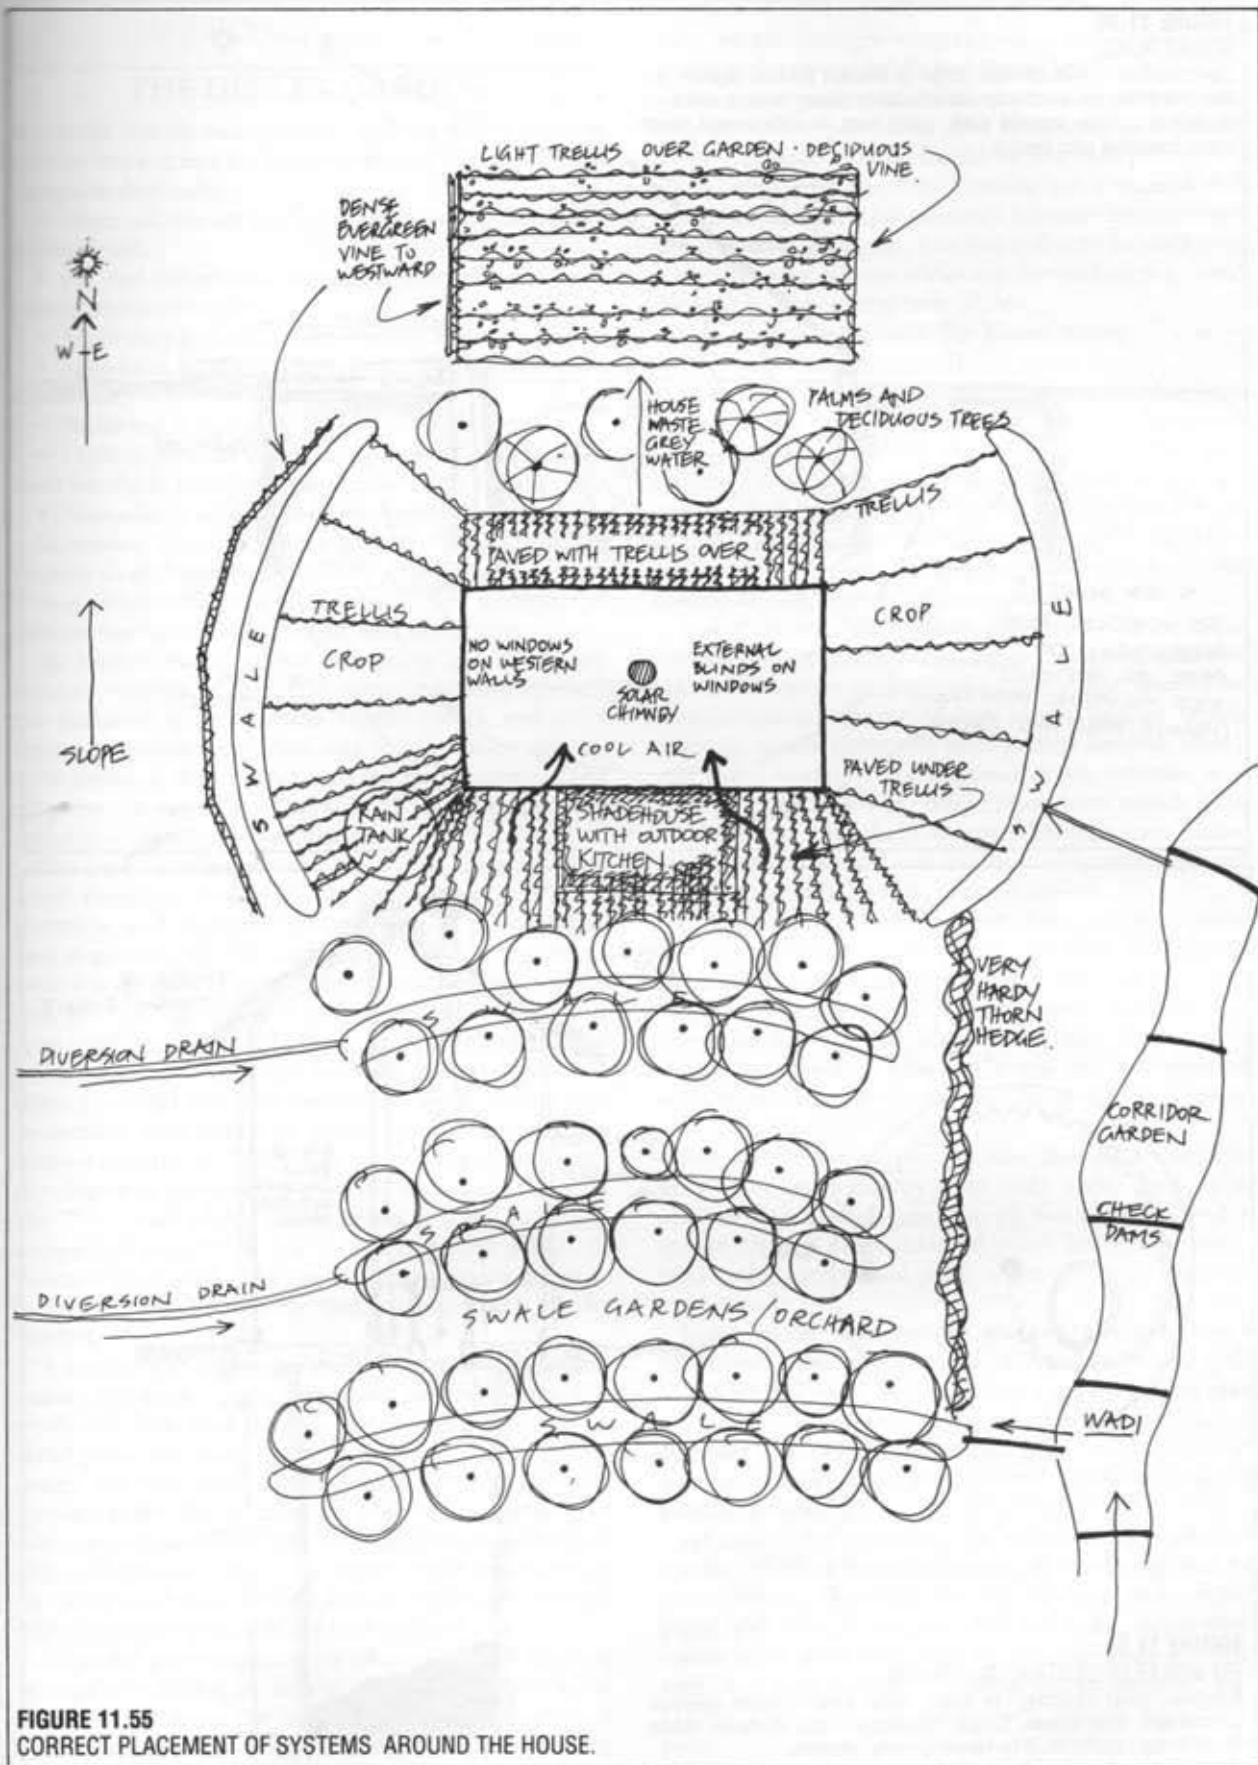 LIGHT TRELLIS OVER GARDEN · DECIDUOUS
VINE.
DENSE
EVERGREEN
VINE TO
WESTWARD
N
W E
HOUSE
WASTE
GREY
WATER
PALMS AND
DECIDUOUS TREES
TRELLIS
PAVED WITH TRELLIS OVER
TRELLIS
CROP
SWALE
NO WINDOWS
ON WESTERN
WALLS
SOLAR
CHIMNEY
EXTERNAL
BLINDS ON
WINDOWS
CROP
SWALE
SLOPE
COOL AIR
PAVED UNDER
TRELLIS
RAIN
TANK
SHADEHOUSE
WITH OUTDOOR
KITCHEN
VERY
HARDY
THORN
HEDGE.
SWALE
DIVERSION DRAIN
CORRIDOR
GARDEN
CHECK
DAMS
SWALE
DIVERSION DRAIN
SWALE GARDENS/ORCHARD
SWALE
WADI
FIGURE 11.55
CORRECT PLACEMENT OF SYSTEMS AROUND THE HOUSE.